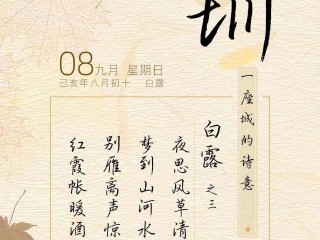 圳
一座城的诗意
08 九月 星期日
己亥年八月初十 白露
白露 之三
夜思风草清
梦到山河水
别雁离声惊
红霞帐暖酒